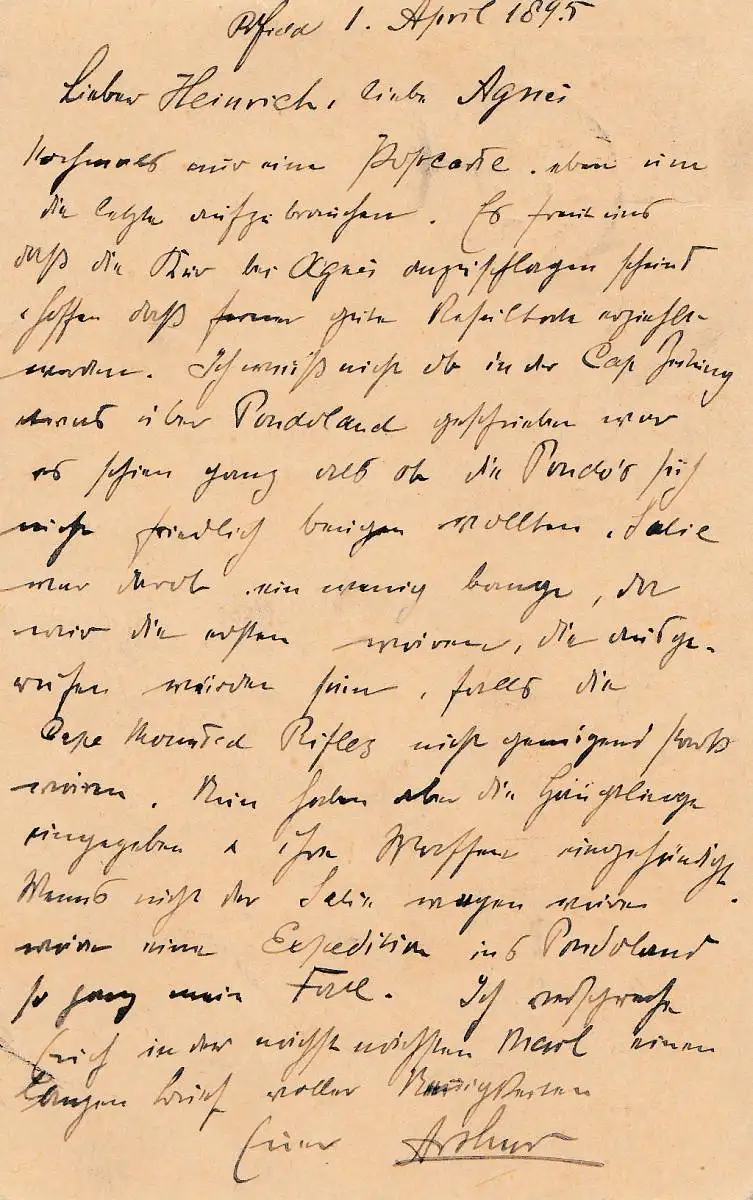 1. April 1895
Lieber Heinrich, liebe Agnes
Nochmals nur eine Postcarte. eben um
die letzte aufzubrauchen. Es freut uns
daß die Kur bei Agnes anzuschlagen scheint
& hoffen daß ferner gute Resultate erziehlt
werden. Ich weiß nicht ob in der Cap Zeitung
etwas über Pondoland geschrieben war
es schien ganz als ob die Pondo's sich
nicht friedlich beugen wollten. Salie
war darob ein wenig bange, da
wir die ersten wären, die
würden sein, falls die
Cape Mounted Rifles nicht genügend stark
wären. Nun haben aber die Häuptlinge
eingegeben & ihre Waffen eingehändigt.
Wenns nicht der Salie wegen wäre
wäre eine Expedition ins Pondoland
so ganz mein Fall. Ich verspreche
Euch in der nächst nächsten Mail einen
langen Brief voller Neuigkeiten
Euer Arthur